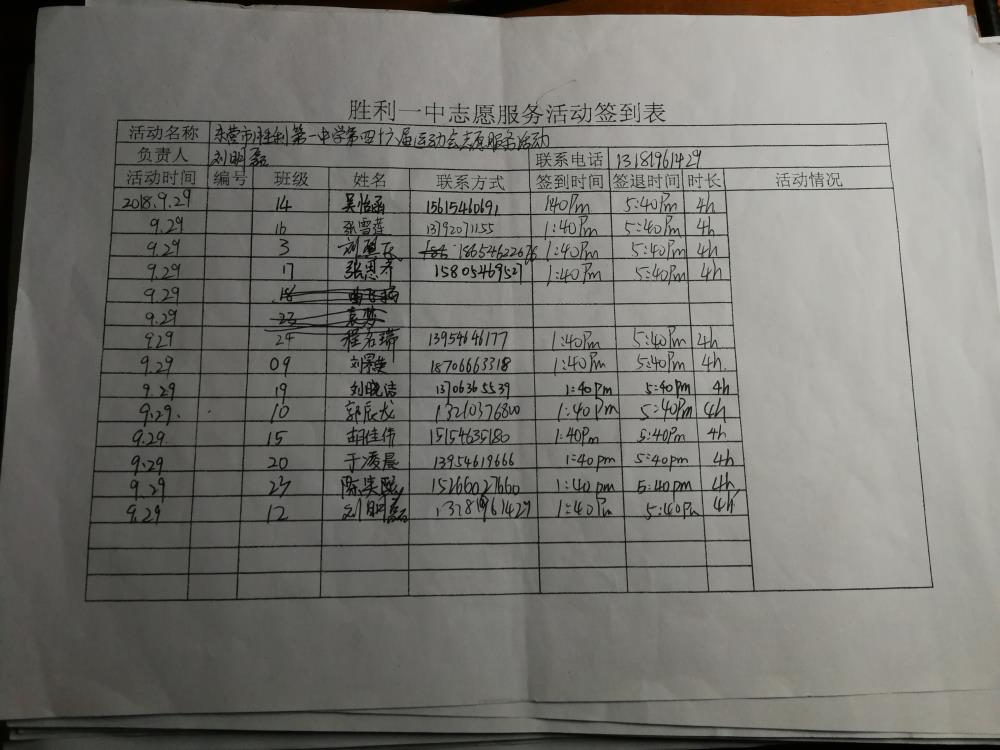 胜利一中志愿服务活动签到表
活动名称 东营市胜利第一中学第四十六届运动会志愿服务活动
负责人 刘明磊 联系电话 13181961429
活动时间 编号 班级 姓名 联系方式 签到时间 签退时间 时长 活动情况
2018.9.29 14 吴怡函 15615460691 1:40Pm 5:40Pm 4h
9.29 16 张雪莲 13792071155 1:40Pm 5:40Pm 4h
9.29 3 刘 18654622676 1:40Pm 5:40Pm 4h
9.29 17 张恩才 15805469527 1:40Pm 5:40Pm 4h
9.29 18
9.29 23 袁梦
9.29 24 程名瑞 13954646177 1:40Pm 5:40Pm 4h
9.29 09 刘荣 18706663318 1:40Pm 5:40Pm 4h.
9.29 19 刘晓洁 13706365539 1:40pm 5:40pm 4h
9.29. 10 郭辰龙 13210376800 1:40PM 5:40PM 4h
9.29 15 胡佳伟 15154635180 1:40Pm 5:40Pm 4h
9.29 20 于凌晨 13954619666 1:40pm 5:40pm 4h
9.29 27 陈奕熙 15266027660 1:40pm 5:40pm 4h
9.29 12 刘明磊 13181961429 1:40Pm 5:40Pm 4h